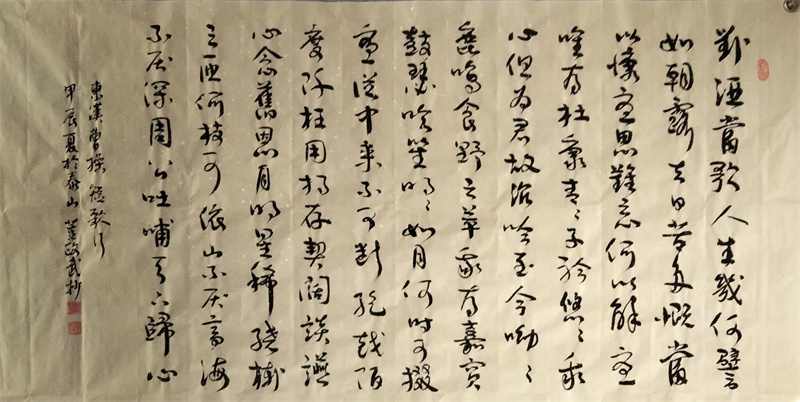 對酒當歌人生幾何譬
如朝露去日苦多慨當
以慷憂思難忘何以解憂
唯有杜康青〻子衿悠〻我
心但為君故沉吟至今呦〻
鹿鳴食野之苹我有嘉賓
鼓瑟吹笙明〻如月何時可掇
憂從中來不可斷絕越陌
度阡枉用相存契闊談讌
心念舊恩月明星稀繞樹
三匝何枝可依山不厭高海
不厭深周公吐哺天下歸心
東漢曹操短歌行
甲辰夏於泰山